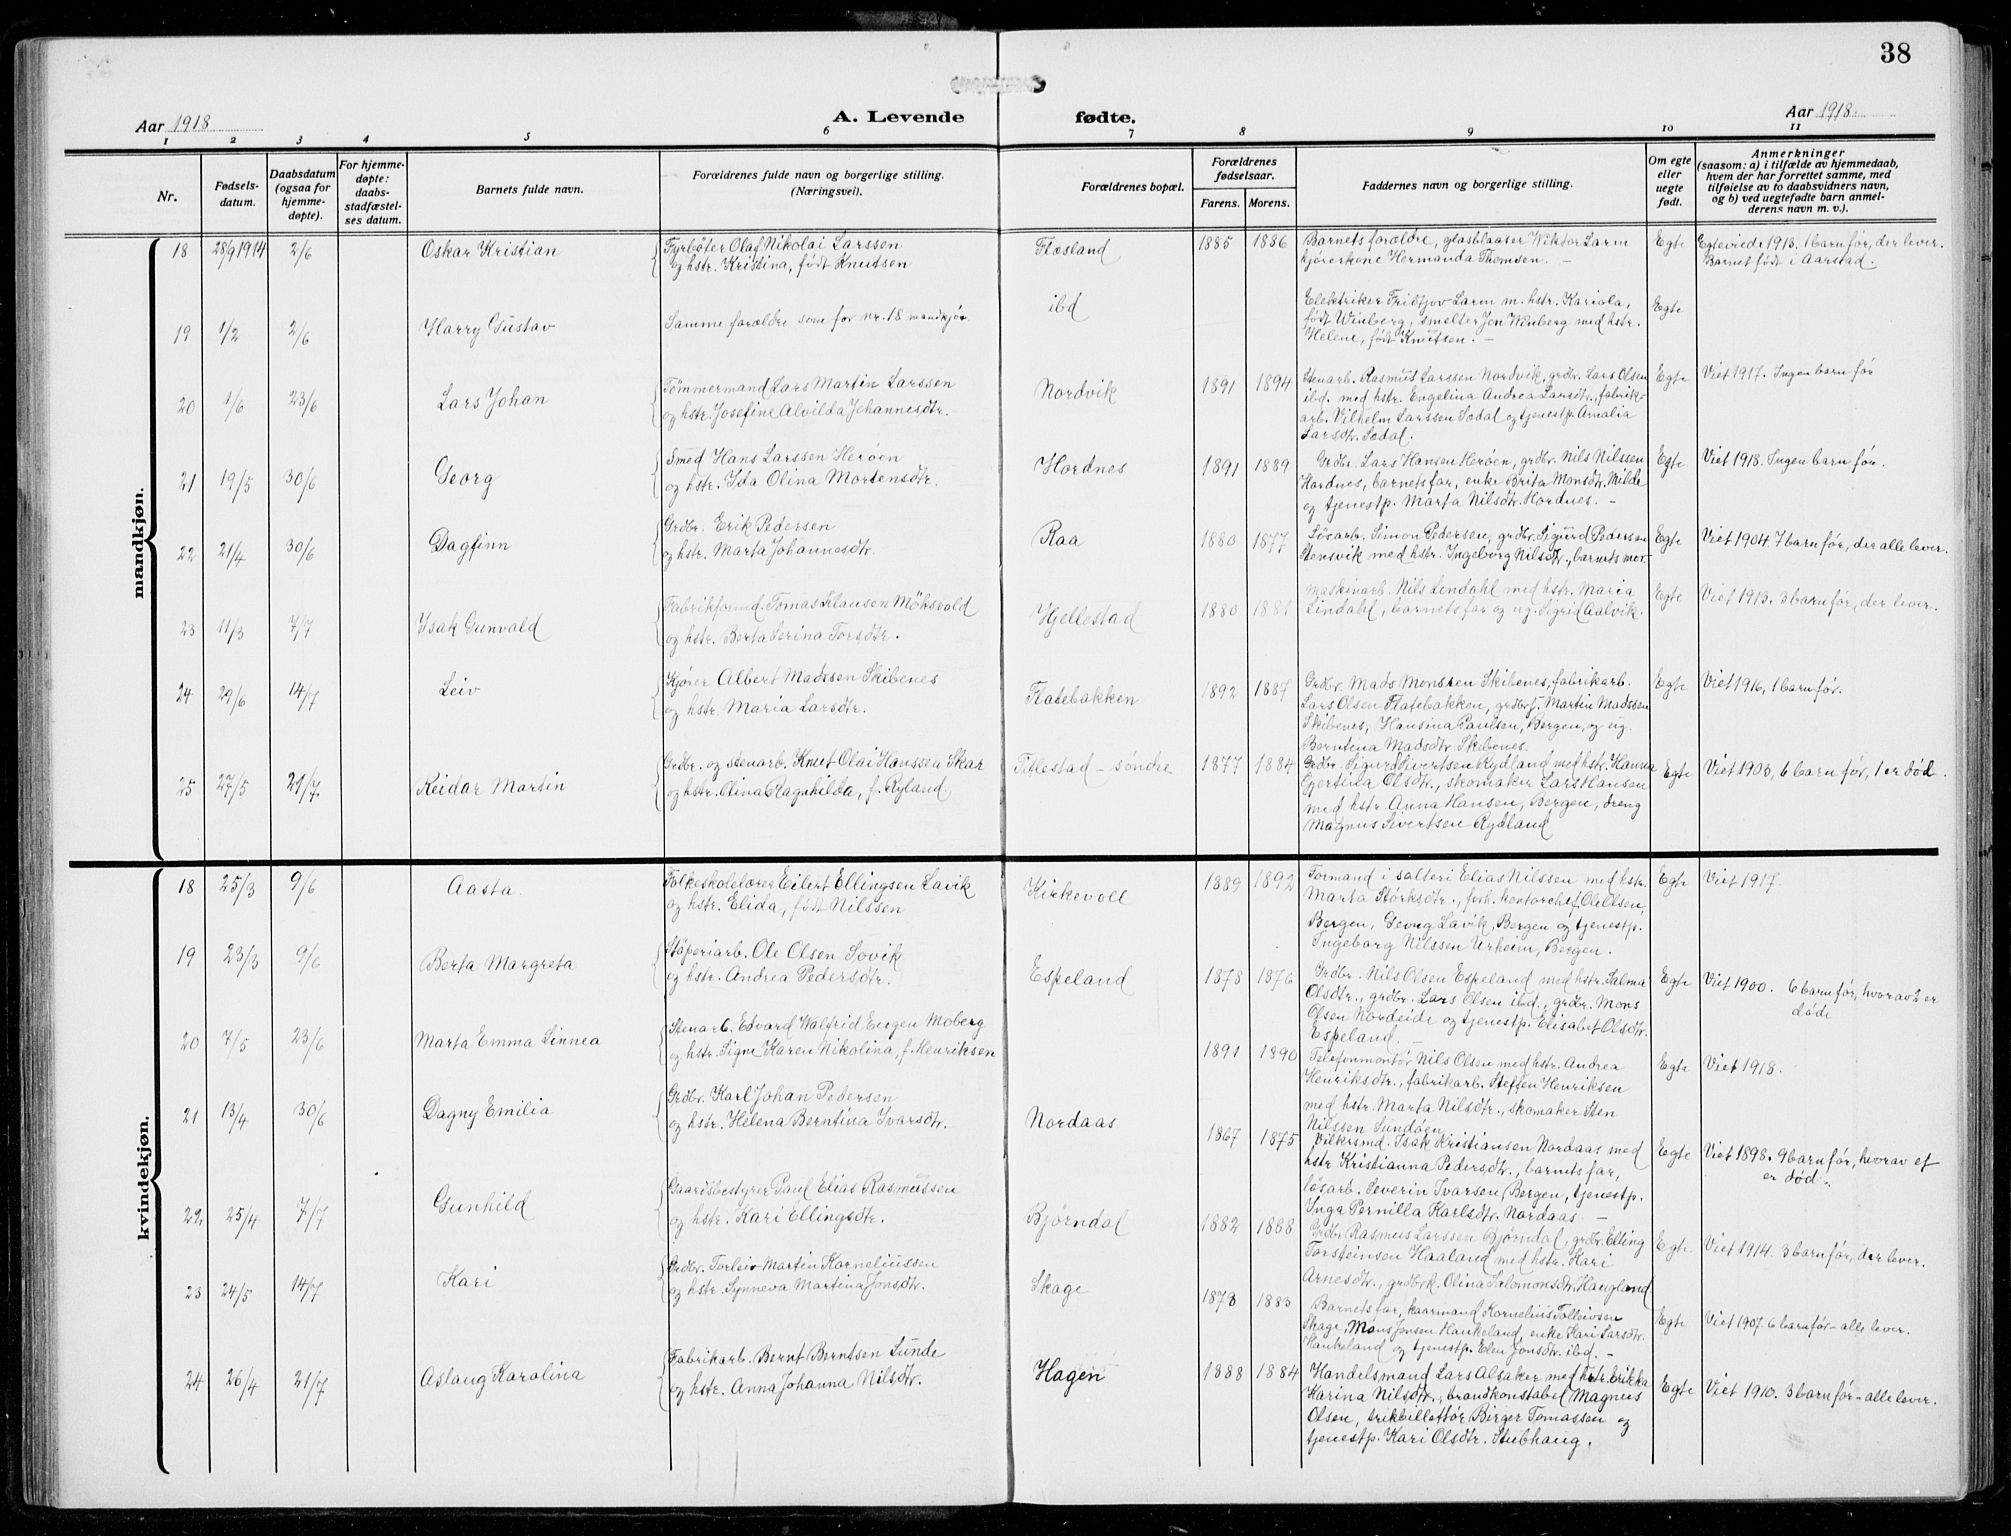 38
Aar 1918
A. Levende fødte.
Aar 1918
1 2 3 4 5 6 7 8 9 10 11
Nr.
Fødsels-
datum.
Daabsdatum
(ogsaa for
hjemme-
døpte).
For hjemme-
døpte:
daabs-
stadfæstel-
ses datum.
Barnets fulde navn.
Forældrenes fulde navn og borgerlige stilling.
(Næringsvei).
Forældrenes bopæl.
Forældrenes
fødselsaar.
Farens. Morens.
Faddernes navn og borgerlige stilling.
Om egte
eller
uegte
født.
Anmerkninger
(saasom: a) i tilfælde av hjemmedaab,
hvem der har forrettet samme, med
tilføielse av to daabsvidners navn,
og b) ved uegtefødte barn anmel-
derens navn m. v.).
mandkjøn.
18 28/9 1914 2/6 Oskar Kristian
Fyrbøter Olaf Nikolai Larssen
og hstr. Kristina, født Knutsen
Flesland 1885 1886
Barnets forældre, glasblaaser Viktor Larm
kjørerkone Hermanda Thomsen. –
Egte
Egteviede 1913. 1 barn før, der lever.
Barnet født i Aarstad.
19 1/2 2/6 Harry Gustav
Samme forældre som for nr. 18 mandkjøn
ibd
Elektriker Fridtjov Larm m. hstr. Kariola,
født Winberg, smelter Jon Winberg med hstr.
Helene, født Knutsen. –
Egte
20 1/6 23/6 Lars Johan
Tømmermand Lars Martin Larssen
og hstr. Josefine Alvilda Johannesdtr.
Nordvik 1891 1894
Stenarb. Rasmus Larssen Nordvik, grdbr. Lars Olsen
ibd. med hstr. Engelina Andrea Larsdtr., fabrik-
arb. Vilhelm Larssen Sodal og tjenestp. Amalia
Larsdtr. Sodal.
Egte
Viet 1917. Ingen barn før
21 19/5 30/6 Georg
Smed Hans Larssen Herøen
og hstr. Ida Olina Mortensdtr.
Hordnes 1891 1889
Grdbr. Lars Hansen Herøen, grdbr. Nils Nilssen
Hordnes, barnets far, enke Brita Monsdtr. Milde
og tjenestp. Marta Nilsdtr. Hordnes. –
Egte
Viet 1918. Ingen barn før.
22 21/4 30/6 Dagfinn
Grdbr. Erik Pedersen
og hstr. Marta Johannesdtr.
Raa 1880 1877
Løsarb. Simon Pedersen, grdbr. Sigurd Pedersen
Stensvik med hstr. Ingeborg Nilsdtr., barnets mor.
Egte
Viet 1904. 7 barn før, der alle lever.
23 11/3 7/7 Isak Gunvald
Fabrikformd. Tomas Klausen Møksvold
og hstr. Berta Serina Torsdtr.
Hjellestad 1880 1881
Maskinarb. Nils Lindahl med hstr. Maria
Lindahl, barnets far og ug. Sigrid Aalvik.
Egte
Viet 1913. 3 barn før, der lever.
24 29/6 14/7 Leiv
Kjører Albert Madssen Skibenes
og hstr. Maria Larsdtr.
Flatebakken 1892 1887
Grdbr. Mads Monsen Skibenes, fabrikarb.
Lars Olsen Flatebakken, grdbrs. Martin Madssen
Skibenes, Hansina Paulsen, Bergen, og ug.
Berntena Madsdtr. Skibenes.
Egte
Viet 1916, 1 barn før.
25 27/5 21/7 Reidar Martin
Grdbr. og stenarb. Knut Olai Hanssen Skar
og hstr. Olina Ragnhilda, f. Ryland
Titlestad – søndre 1877 1884
Grdbr. Sigurd Sivertsen Rydland med hstr. Hanna
Gjertina Olsdtr., skomaker Lars Hansen
med hstr. Anna Hansen, Bergen, dreng
Magnus Sivertsen Rydland
Egte
Viet 1903, 6 barn før, 1 er død.
kvindekjøn.
18 25/3 9/6 Aasta
Folkeskolelærer Eilert Ellingsen Lavik
og hstr. Elida, født Nilssen
Kirkevoll 1889 1892
Formand i salteri Elias Nilssen med hstr.
Marta Størksdtr., forh. kontorchef Ole Olsen,
Bergen, Georg Lavik, Bergen og tjenestp.
Ingeborg Nilssen Urheim, Bergen.
Egte
Viet 1917.
19 23/3 9/6 Berta Margreta
Støperiarb. Ole Olsen Sovik
og hstr. Andrea Pedersdtr.
Espeland 1878 1876
Grdbr. Nils Olsen Espeland med hstr. Salma
Olsdtr., grdbr. Lars Olsen ibd., grdbr. Mons
Olsen Nordeide og tjenestp. Elisabet Olsdtr.
Espeland. –
Egte
Viet 1900. 6 barn før, hvorav 2 er
døde
20 7/5 23/6 Marta Emma Linnea
Stenarb. Edvard Walfrid Eugen Moberg
og hstr. Signe Karen Nikolina, f. Henriksen
1891 1890
Telefonmontør Nils Olsen med hstr. Andrea
Henriksdtr., fabrikarb. Steffen Henriksen
med hstr. Marta Nilsdtr., skomaker Sten
Nilssen Sundøen.
Egte
Viet 1918.
21 13/4 30/6 Dagny Emilia
Grdbr. Karl Johan Pedersen
og hstr. Helena Berntina Ivarsdtr.
Nordaas 1867 1875
Vilkrsmd. Isak Kristiansen Nordaas med
hstr Kristianna Pedersdtr., barnets far,
løsarb. Severin Ivarsen, Bergen, tjenestp.
Inga Pernilla Karlsdtr. Nordaas –
Egte
Viet 1898. 9 barn før, hvorav et
er død.
22. 25/4 7/7 Gunhild
Gaardsbestyrer Paul Elias Rasmussen
og hstr. Kari Ellingsdtr.
Bjørndal 1882 1888
Grdbr. Rasmus Larssen Bjørndal, grdbr. Elling
Torsteinsen Haaland med hstr. Kari
Arnesdtr., grdbrk. Olina Salomonsdtr. Haugland
Egte
Viet 1914. 3 barn før, der lever.
23 24/5 14/7 Kari
Grdbr. Torleiv Martin Korneliussen
og hstr. Synneva Martina Jonsdtr.
Skage 1873 1883
Barnets far, kaarmand Kornelius Tolleivsen
Skage, Mons Jonsen Haukeland, enke Kari Larsdtr.
Haukeland og tjenestp. Elen Jonsdtr. ibd. –
Egte
Viet 1907. 6 barn før – alle lever.
24 26/4 21/7 Aslaug Karolina
Fabrikarb. Bernt Berntsen Lunde
og hstr. Anna Johanna Nilsdtr.
Hagen 1888 1884
Handelsmand Lars Alsaker med hstr. Erikka
Karina Nilsdtr., brandkonstabel Magnus
Olsen, trikbillettør Birger Tomassen og
tjenestp. Kari Olsdtr. Stubhaug.
Egte
Viet 1910. 3 barn før – alle lever.